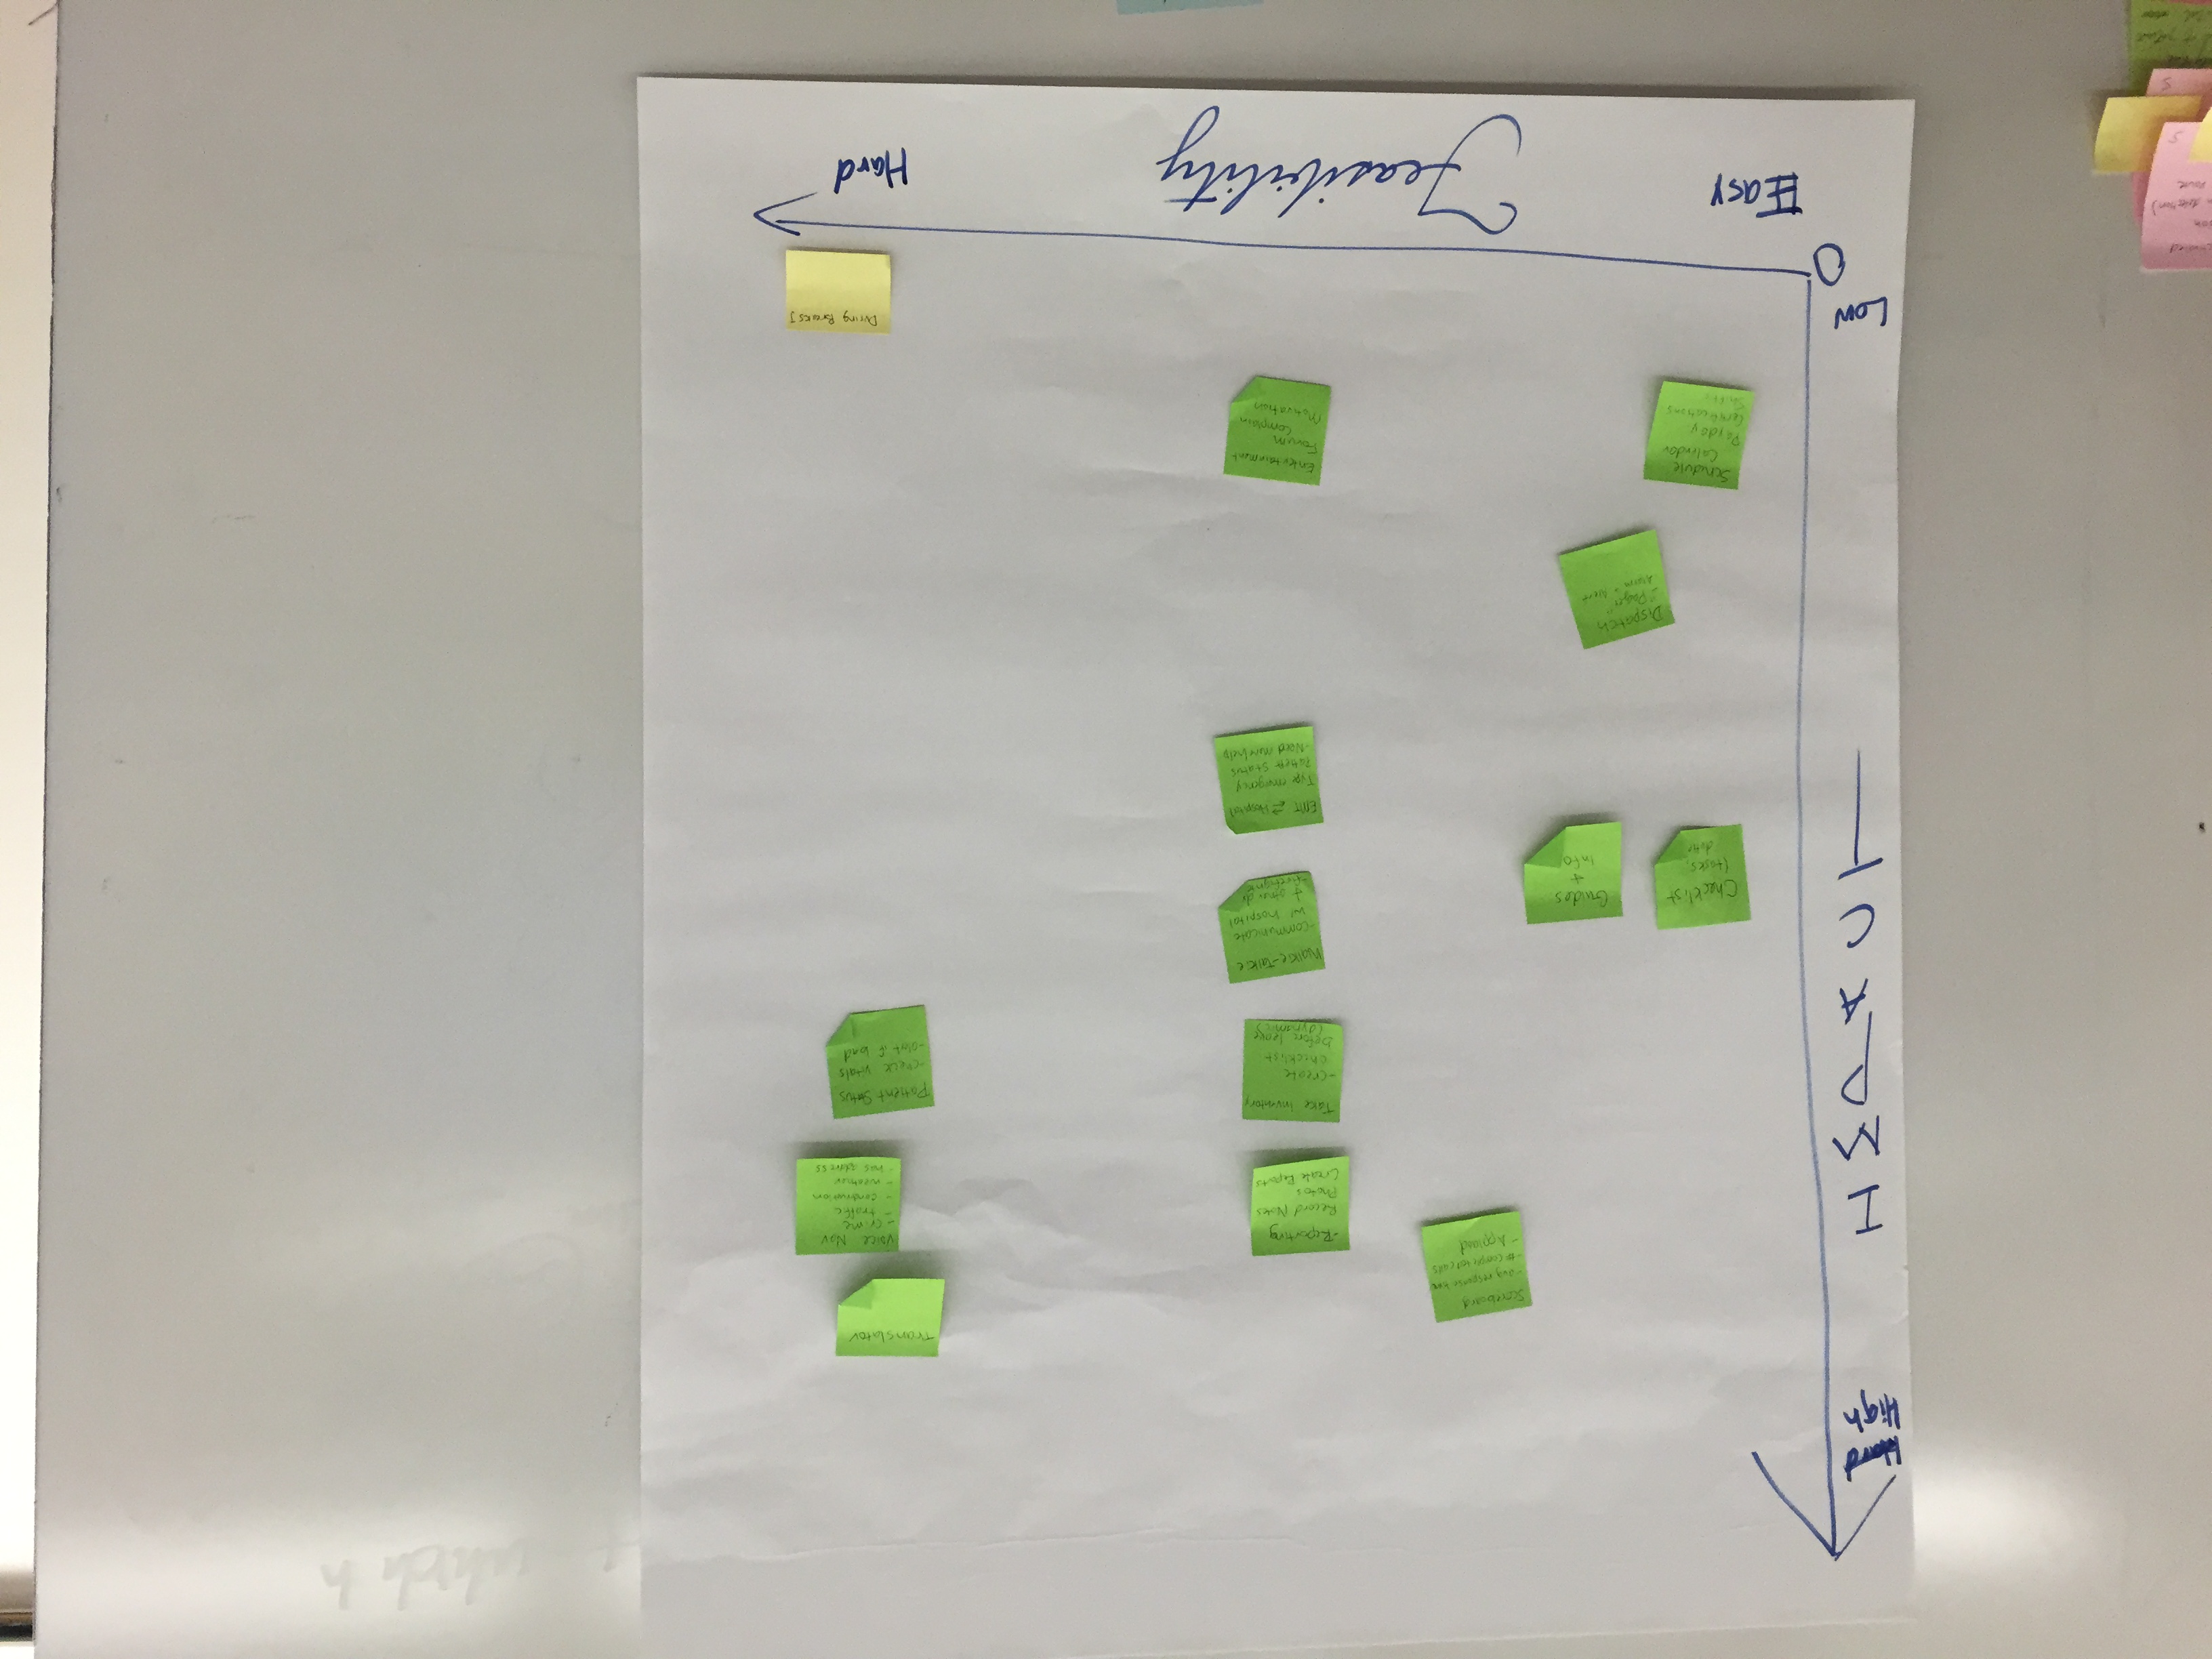 which h
High
IMPACT
Translator
Scoreboard
- avg response time
- # completed calls
- Applaud
- Reporting
Record Notes
Photos
Create Reports
Voice Nav
- crime
- traffic
- construction
- weather
- has address
Take inventory
- create
checklist
before leave
(dynamic)
Patient Status
- check vitals
- alert if bad
Walkie-Talkie
- communicate
w/ hospital
+ other dr
Checklist
(tasks,
Guides
+
Info
EMT ⇄ Hospital
Type emergency
Patient Status
- Need more help
Dispatch
- "Pager"
Schedule
Calendar
Payday
Certifications
Shifts
Entertainment
Forum
Complain
Motivation
During Breaks
Low
O
Easy
Feasibility
Hard